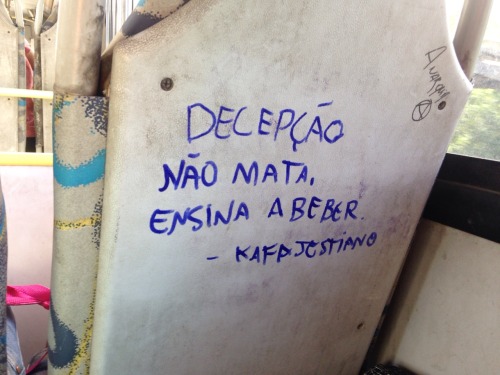 DECEPÇÃO
NÃO MATA,
ENSINA A BEBER.
- KAFAJESTIANO